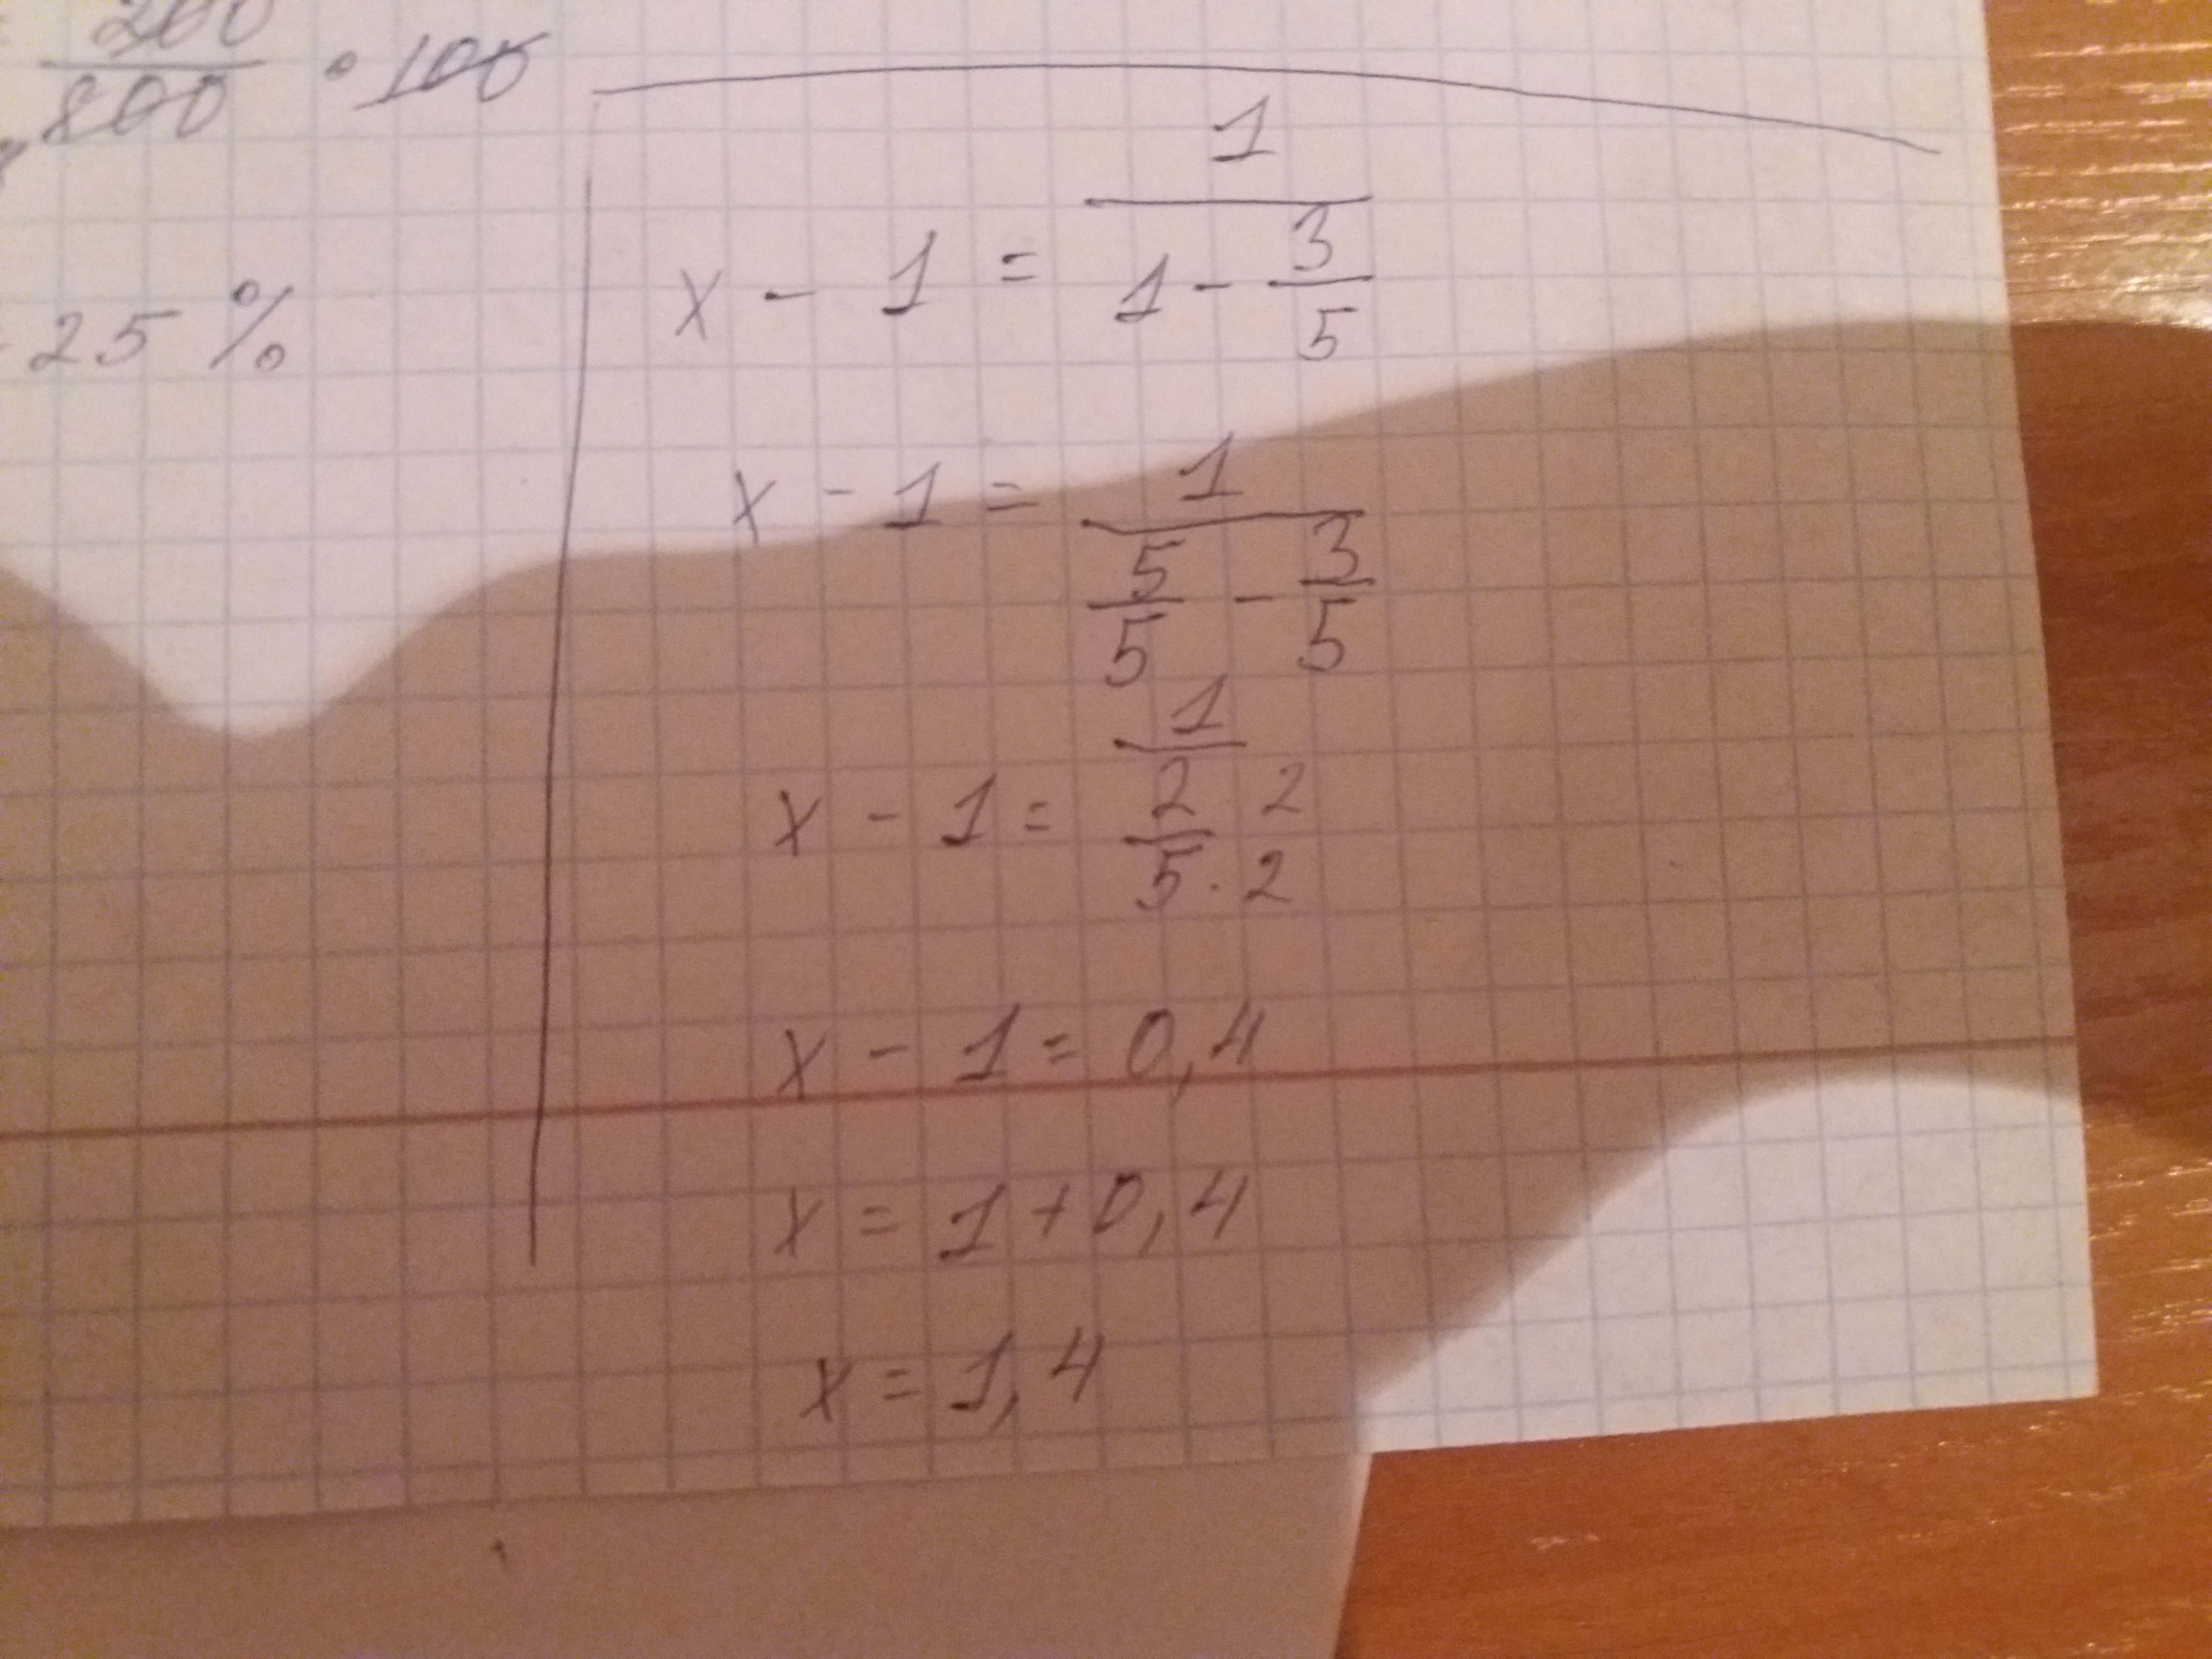 200/800 · 100
25 %
x - 1 = 1/(1 - 3/5)
x - 1 = 1/(5/5 - 3/5)
x - 1 = 1/(2/5) 2 · 2
x - 1 = 0,4
x = 1 + 0,4
x = 1,4